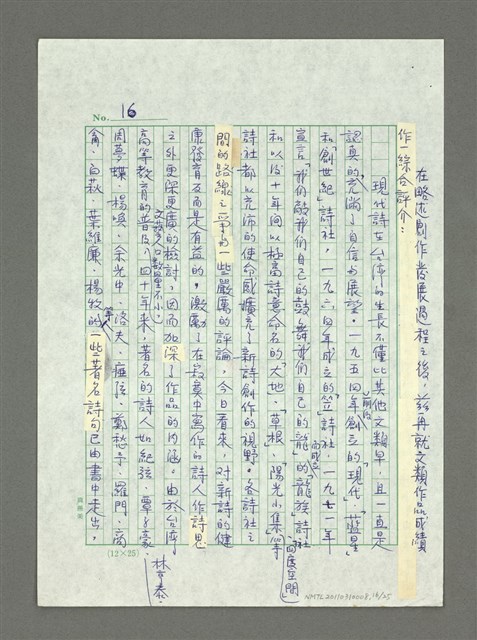 No. 16
在略述創作發展過程之後，茲再就文類作品成績
作一綜合評介：
現代詩在台灣的生長不僅比其他文類早，且一直是
認真的，充滿了自信与展望。一九五四年創立的「現代」「藍星」
和「創世紀」詩社，一九六四年成立的「笠」詩社，一九七一年
宣言「我們敲我們自己的鼓，舞我們自己的龍」的「龍族」詩社
和以後十年間以極富詩意命名的「大地」、「草根」、「陽光小集」等
而成立
「四度空間」
詩社都以充沛的使命感擴充了新詩創作的視野。各詩社之
間的路線之爭的一些嚴厲的評論，今日看來，對新詩的健
康發育反而是有益的，激勵了在寂寞中寫作的詩人作詩思
之外更深更廣的檢討，因而加深了作品的內涵。由於台灣
高等教育的普及，四十年來，著名的詩人如紀弦、覃子豪、
文藝人口數量不小，
林亨泰、
周夢蝶、楊喚、余光中、洛夫、瘂弦、鄭愁予、羅門、商
禽、白萩、葉維廉、楊牧等的一些著名詩句已由書中走出，
(12×25)
NMTL20110310008,16/25